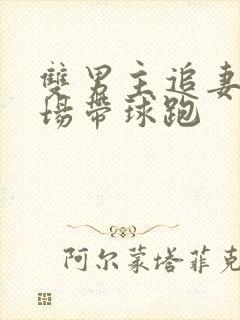 雙男主追妻
場帶球跑
阿尔蒙塔菲克